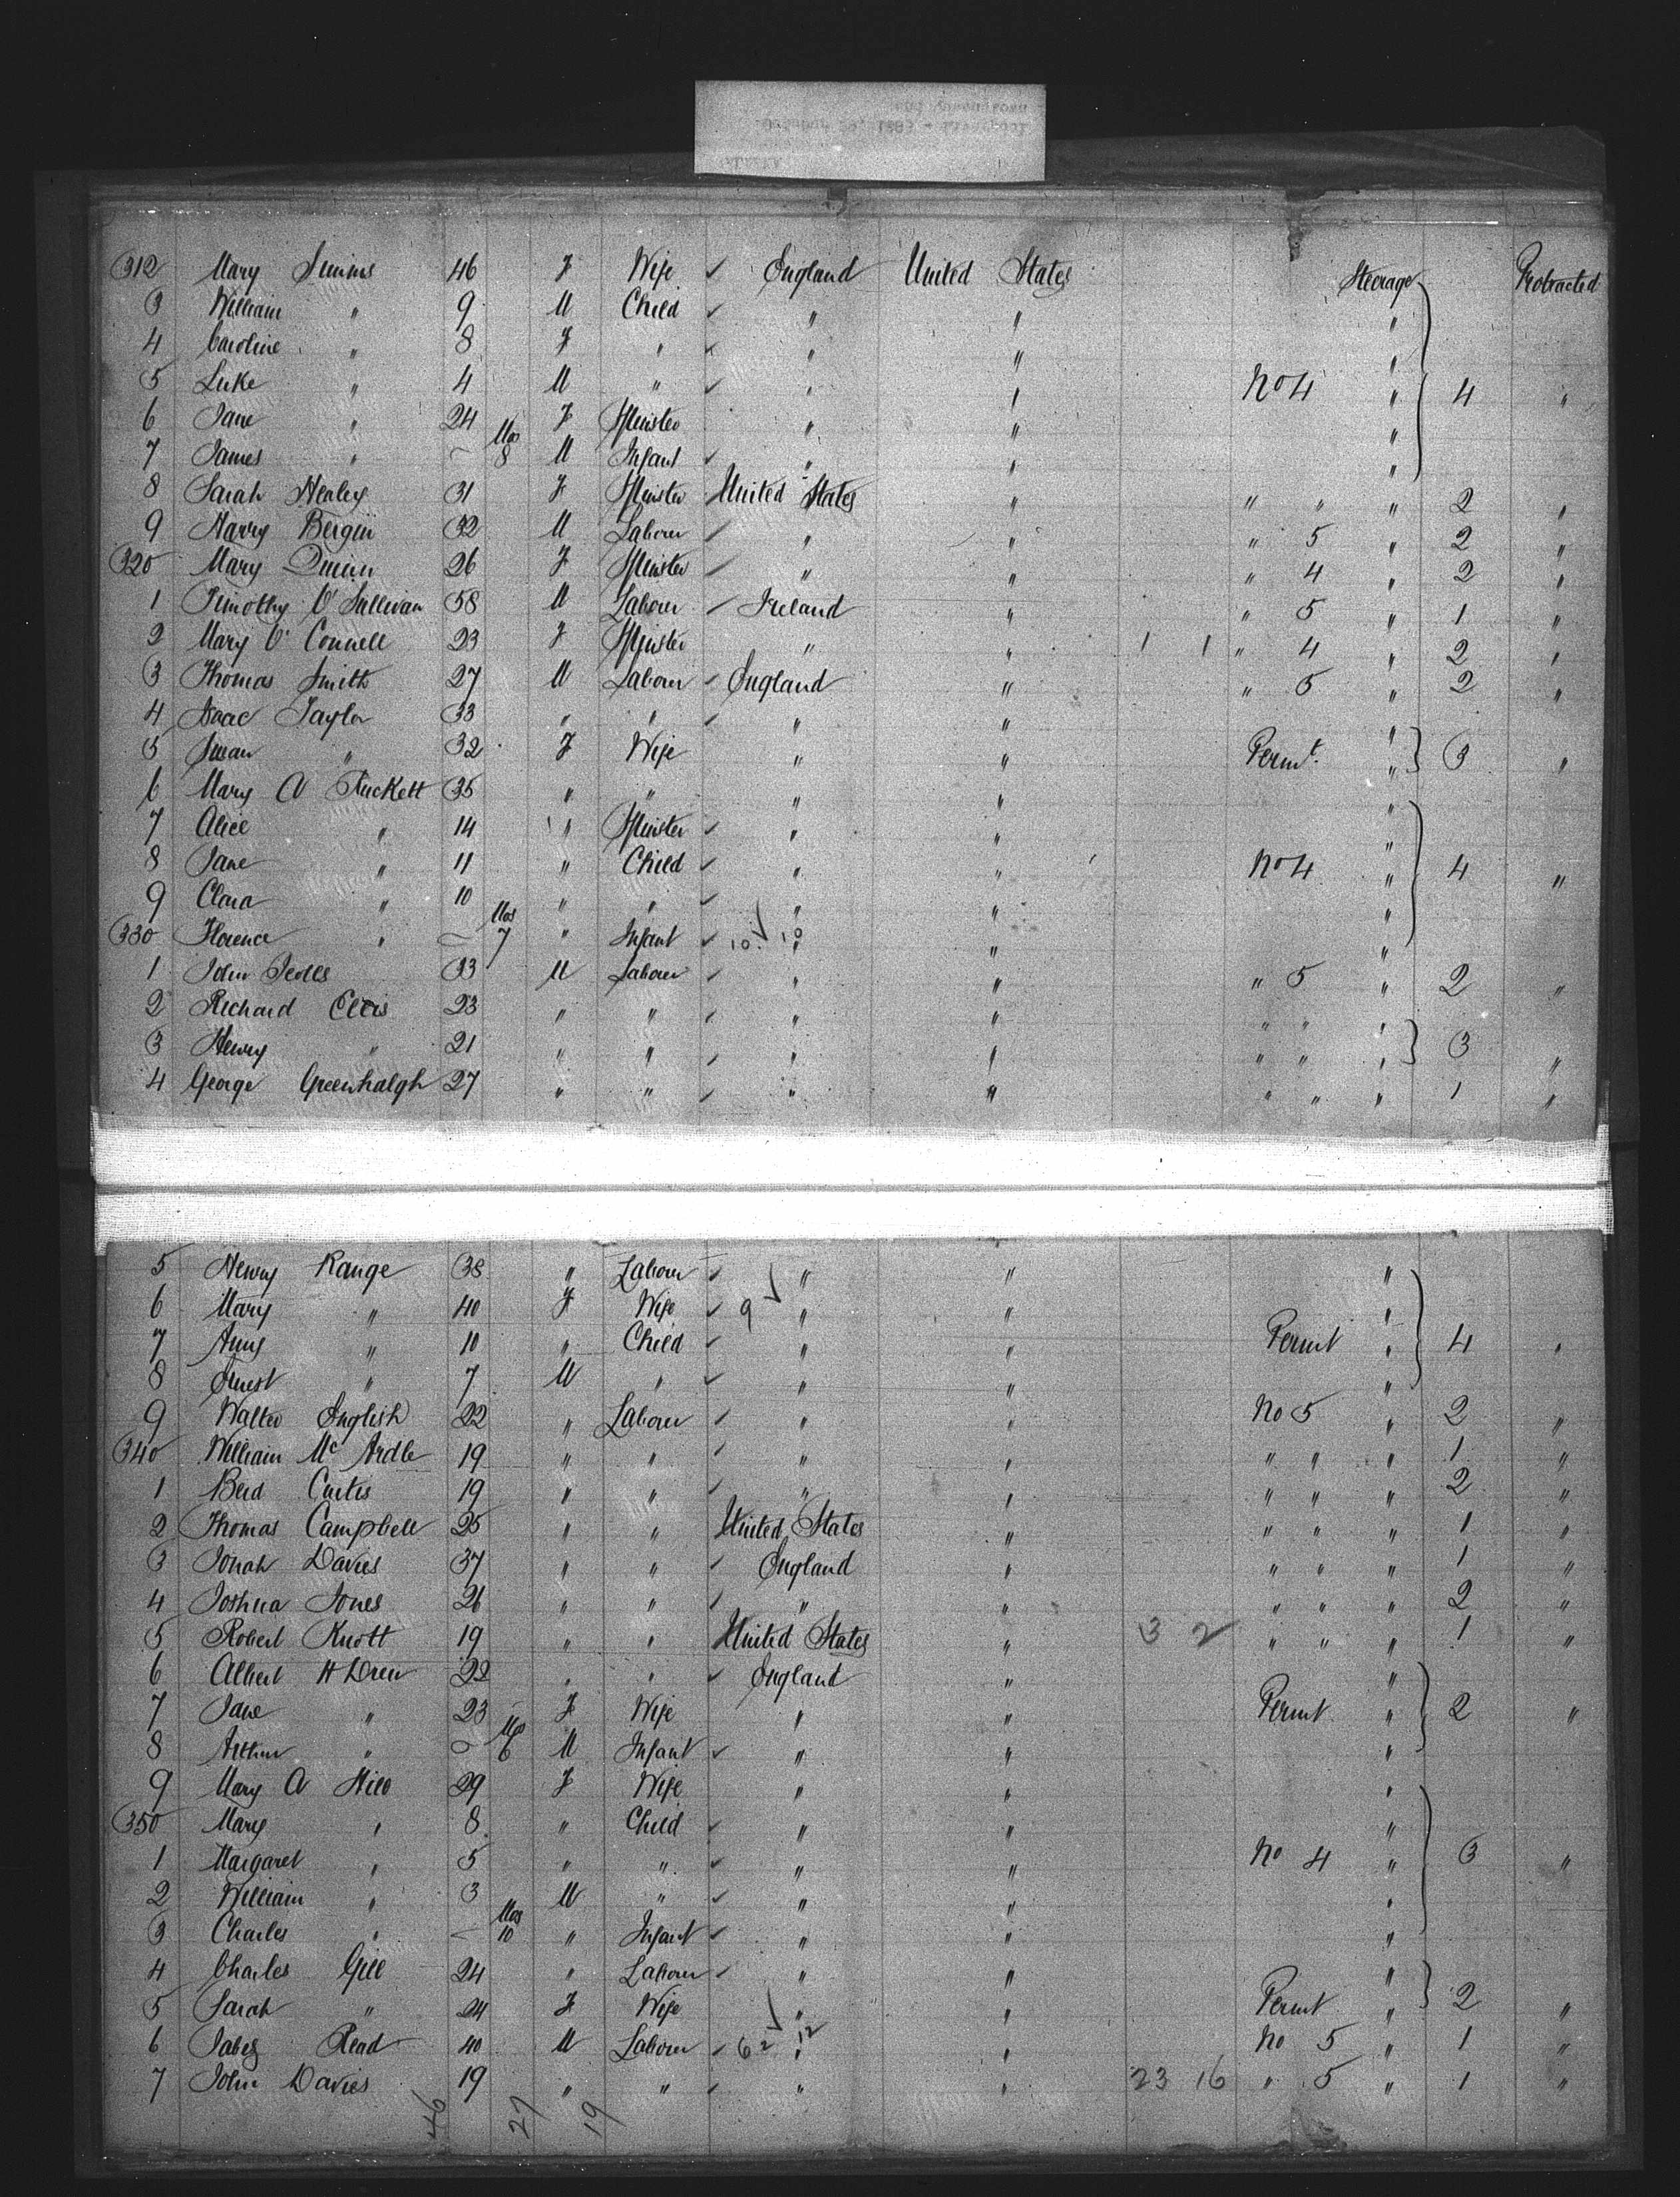 312 Mary Simms 46 F Wife ✓ England United States Steerage Protracted
3 William " 9 M Child ✓ " " "
4 Caroline " 8 F " ✓ " " "
5 Luke " 4 M " ✓ " " No 4 " 4 "
6 Jane " 24 F Spinster " " "
7 James " – Mos 8 M Infant ✓ " " "
8 Sarah Healey 31 F Spinster United States " " " " 2 "
9 Harry Bergin 32 M Labourer ✓ " " " 5 " 2 "
320 Mary Quinn 26 F Spinster ✓ " " " 4 " 2 "
1 Timothy O'Sullivan 58 M Labourer ✓ Ireland " " 5 " 1 "
2 Mary O'Connell 23 F Spinster " " 1 1 " 4 " 2 "
3 Thomas Smith 27 M Labourer ✓ England " " 5 " 2 "
4 Isaac Taylor 33 " " ✓ " " "
5 Susan " 32 F Wife " " Permt. " 3 "
6 Mary A Tuckett 35 " " " " "
7 Alice " 14 " Spinster ✓ " " "
8 Jane " 11 " Child ✓ " " No 4 " 4 "
9 Clara " 10 " " ✓ " " "
330 Florence " – Mos 7 " Infant ✓ 10 ✓ 10 " " "
1 John 33 M Labourer ✓ " " " 5 " 2 "
2 Richard Ellis 23 " " ✓ " " " "
3 Henry " 21 " " ✓ " " " " " 3 "
4 George Greenhalgh 27 " " ✓ " " " " " 1 "
5 Henry Range 38 " Labourer ✓ ✓ " " "
6 Mary " 40 F Wife ✓ 9 " " "
7 Amy " 10 " Child ✓ " " Permit " 4 "
8 Ernest " 7 M " ✓ " " "
9 Walter English 22 " Labourer ✓ " " No 5 " 2 "
340 William McArdle 19 " " ✓ " " " " " 1 "
1 Curtis 19 " " ✓ " " " " " 2 "
2 Thomas Campbell 25 " " United States " " " " 1 "
3 Jonah Davies 37 " " ✓ England " " " " 1 "
4 Joshua Jones 26 " " ✓ " " " " " 2 "
5 Robert Knott 19 " " United States " 3 2 " " " 1 "
6 Albert H Drew 22 " " ✓ England " "
7 Jane " 23 F Wife " " Permt " 2 "
8 Arthur " – Mos 6 M Infant ✓ " " "
9 Mary A Hill 29 F Wife " " "
350 Mary " 8 " Child ✓ " " "
1 Margaret " 5 " " ✓ " " No 4 " 3 "
2 William " 3 M " ✓ " " "
3 Charles " – Mos 10 " Infant ✓ " " "
4 Charles Gill 24 " Labourer ✓ " " "
5 Sarah " 24 F Wife ✓ " " Permt " 2 "
6 Jabez Read 40 M Labourer ✓ 62 12 " " No 5 " 1 "
7 John Davies 19 " " ✓ " " 23 16 " 5 " 1 "
46 27 19